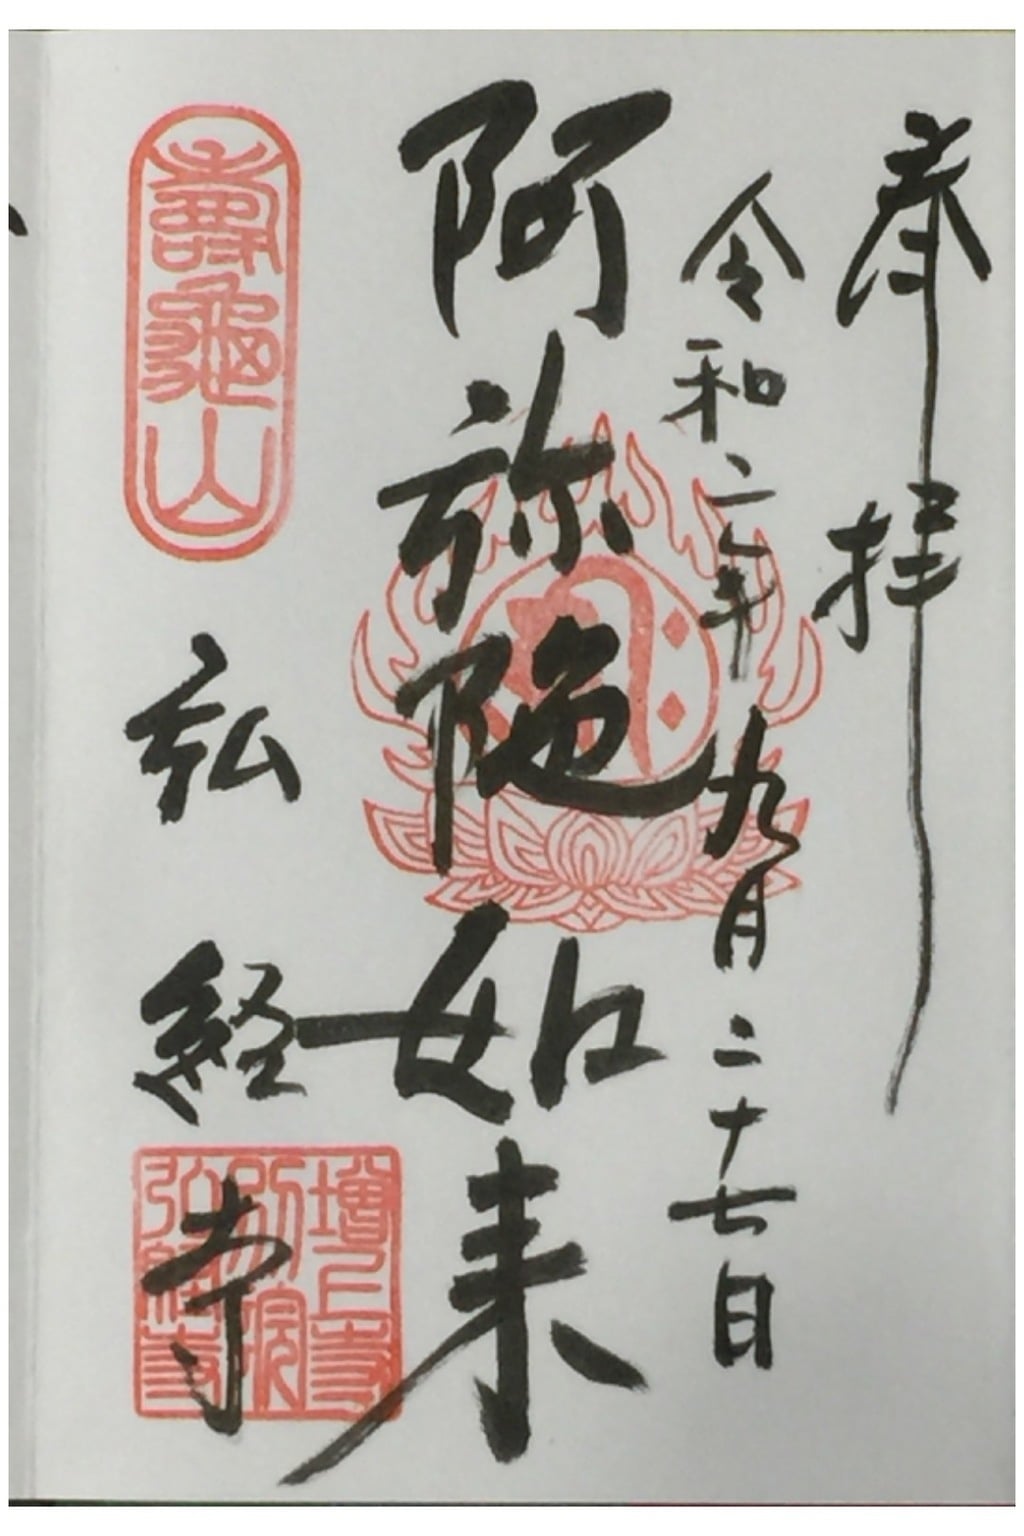 奉拝
令和二年九月二十七日
阿弥陀如来
壽龜山
弘経寺
増上寺
別院
弘經寺